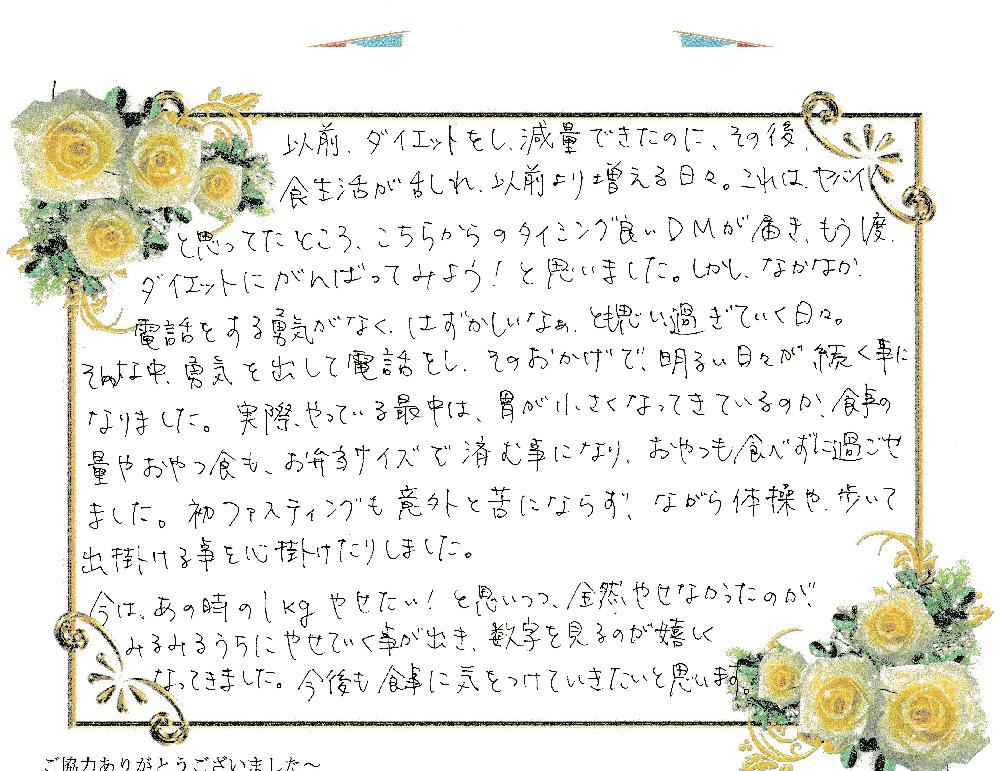 以前、ダイエットをし、減量できたのに、その後、
食生活が乱れ、以前より増える日々。これは、ヤバイ
と思ってたところ、こちらからのタイミング良いDMが届き、もう1度、
ダイエットにがんばってみよう!と思いました。しかし、なかなか、
電話をする勇気がなく、はずかしいなぁ、と思い過ぎていく日々。
そんな中、勇気を出して電話をし、そのおかげで、明るい日々が続く事に
なりました。実際、やっている最中は、胃が小さくなってきているのか、食事の
量やおやつ食も、お弁当サイズで済む事になり、おやつも食べずに過ごせ
ました。初ファスティングも意外と苦にならず、ながら体操や、歩いて
出掛ける事を心掛けたりしました。
今は、あの時の1kgやせたい!と思いつつ、全然やせなかったのが、
みるみるうちにやせていく事が出き、数字を見るのが嬉しく
なってきました。今後も食事に気をつけていきたいと思います。
ご協力ありがとうございました〜